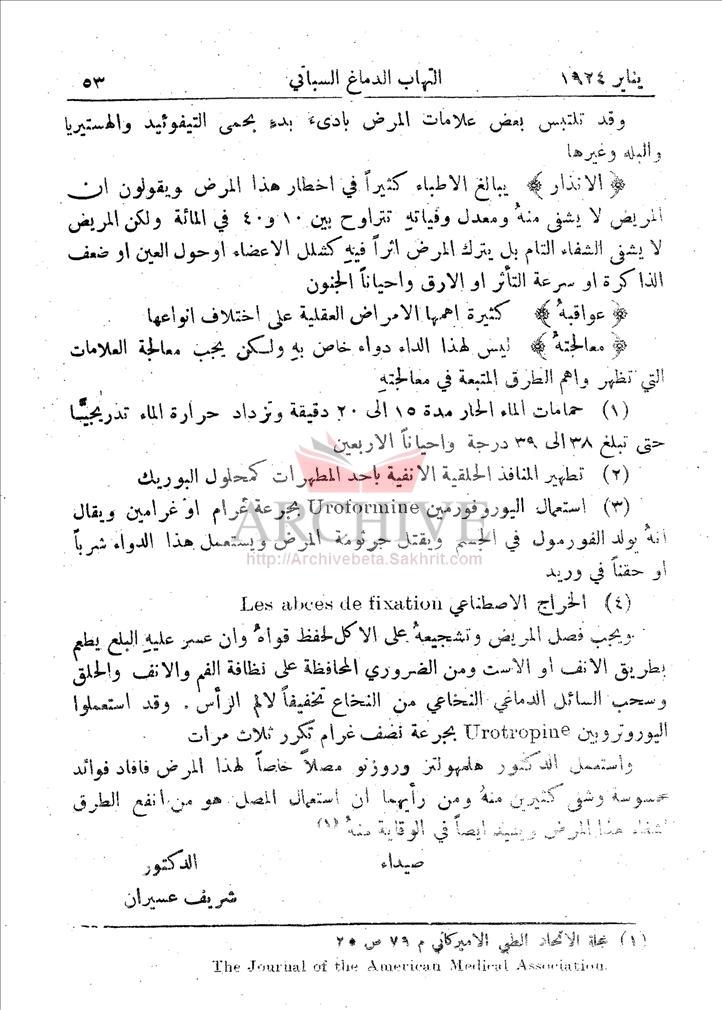 يناير ١٩٢٤ التهاب الدماغ السباتي ٥٣
وقد تلتبس بعض علامات المرض بادىء بدء بحمى التيفوئيد والهستيريا
والبله وغيرها
﴿ الانذار ﴾ يبالغ الاطباء كثيراً في اخطار هذا المرض ويقولون ان
المريض لا يشفى منهُ ومعدل وفياتهِ تتراوح بين ١٠ و ٤٠ في المائة ولكن المريض
لا يشفى الشفاء التام بل يترك المرض اثراً فيهِ كشلل الاعضاء او حول العين او ضعف
الذاكرة او سرعة التأثر او الارق واحياناً الجنون
﴿ عواقبهُ ﴾ كثيرة اهمها الامراض العقلية على اختلاف انواعها
﴿ معالجتهُ ﴾ ليس لهذا الداء دواء خاص بهِ ولكن يجب معالجة العلامات
التي تظهر واهم الطرق المتبعة في معالجتهِ
(١) حمامات الماء الحار مدة ١٥ الى ٢٠ دقيقة وتزداد حرارة الماء تدريجيًّا
حتى تبلغ ٣٨ الى ٣٩ درجة واحياناً الاربعين
(٢) تطهير المنافذ الحلقية الانفية باحد المطهرات كمحلول البوريك
(٣) استعمال اليوروفورمين Uroformine بجرعة غرام او غرامين ويقال
انهُ يولد الفورمول في الجسم ويقتل جرثومة المرض ويستعمل هذا الدواء شرباً
او حقناً في وريد
(٤) الخراج الاصطناعي Les abces de fixation
ويجب فصل المريض وتشجيعهُ على الاكل لحفظ قواهُ وان عسر عليهِ البلع يطعم
بطريق الانف او الاست ومن الضروري المحافظة على نظافة الفم والانف والحلق
وسحب السائل الدماغي النخاعي من النخاع تخفيفاً لالم الرأس. وقد استعملوا
اليوروتروبين Urotropine بجرعة نصف غرام تكرر ثلاث مرات
واستعمل الدكتور هلمهولتز وروزنو مصلاً خاصاً لهذا المرض فافاد فوائد
محسوسة وشفي كثيرين منهُ ومن رأيهما ان استعمال المصل هو من انفع الطرق
لشفاء هذا المرض ويفيد ايضاً في الوقاية منهُ (١)
صيداء الدكتور
شريف عسيران
(١) مجلة الاتحاد الطبي الاميركاني م ٧٩ ص ٢٥
The Journal of the American Medical Association.
ARCHIVE
http://Archivebeta.Sakhrit.com